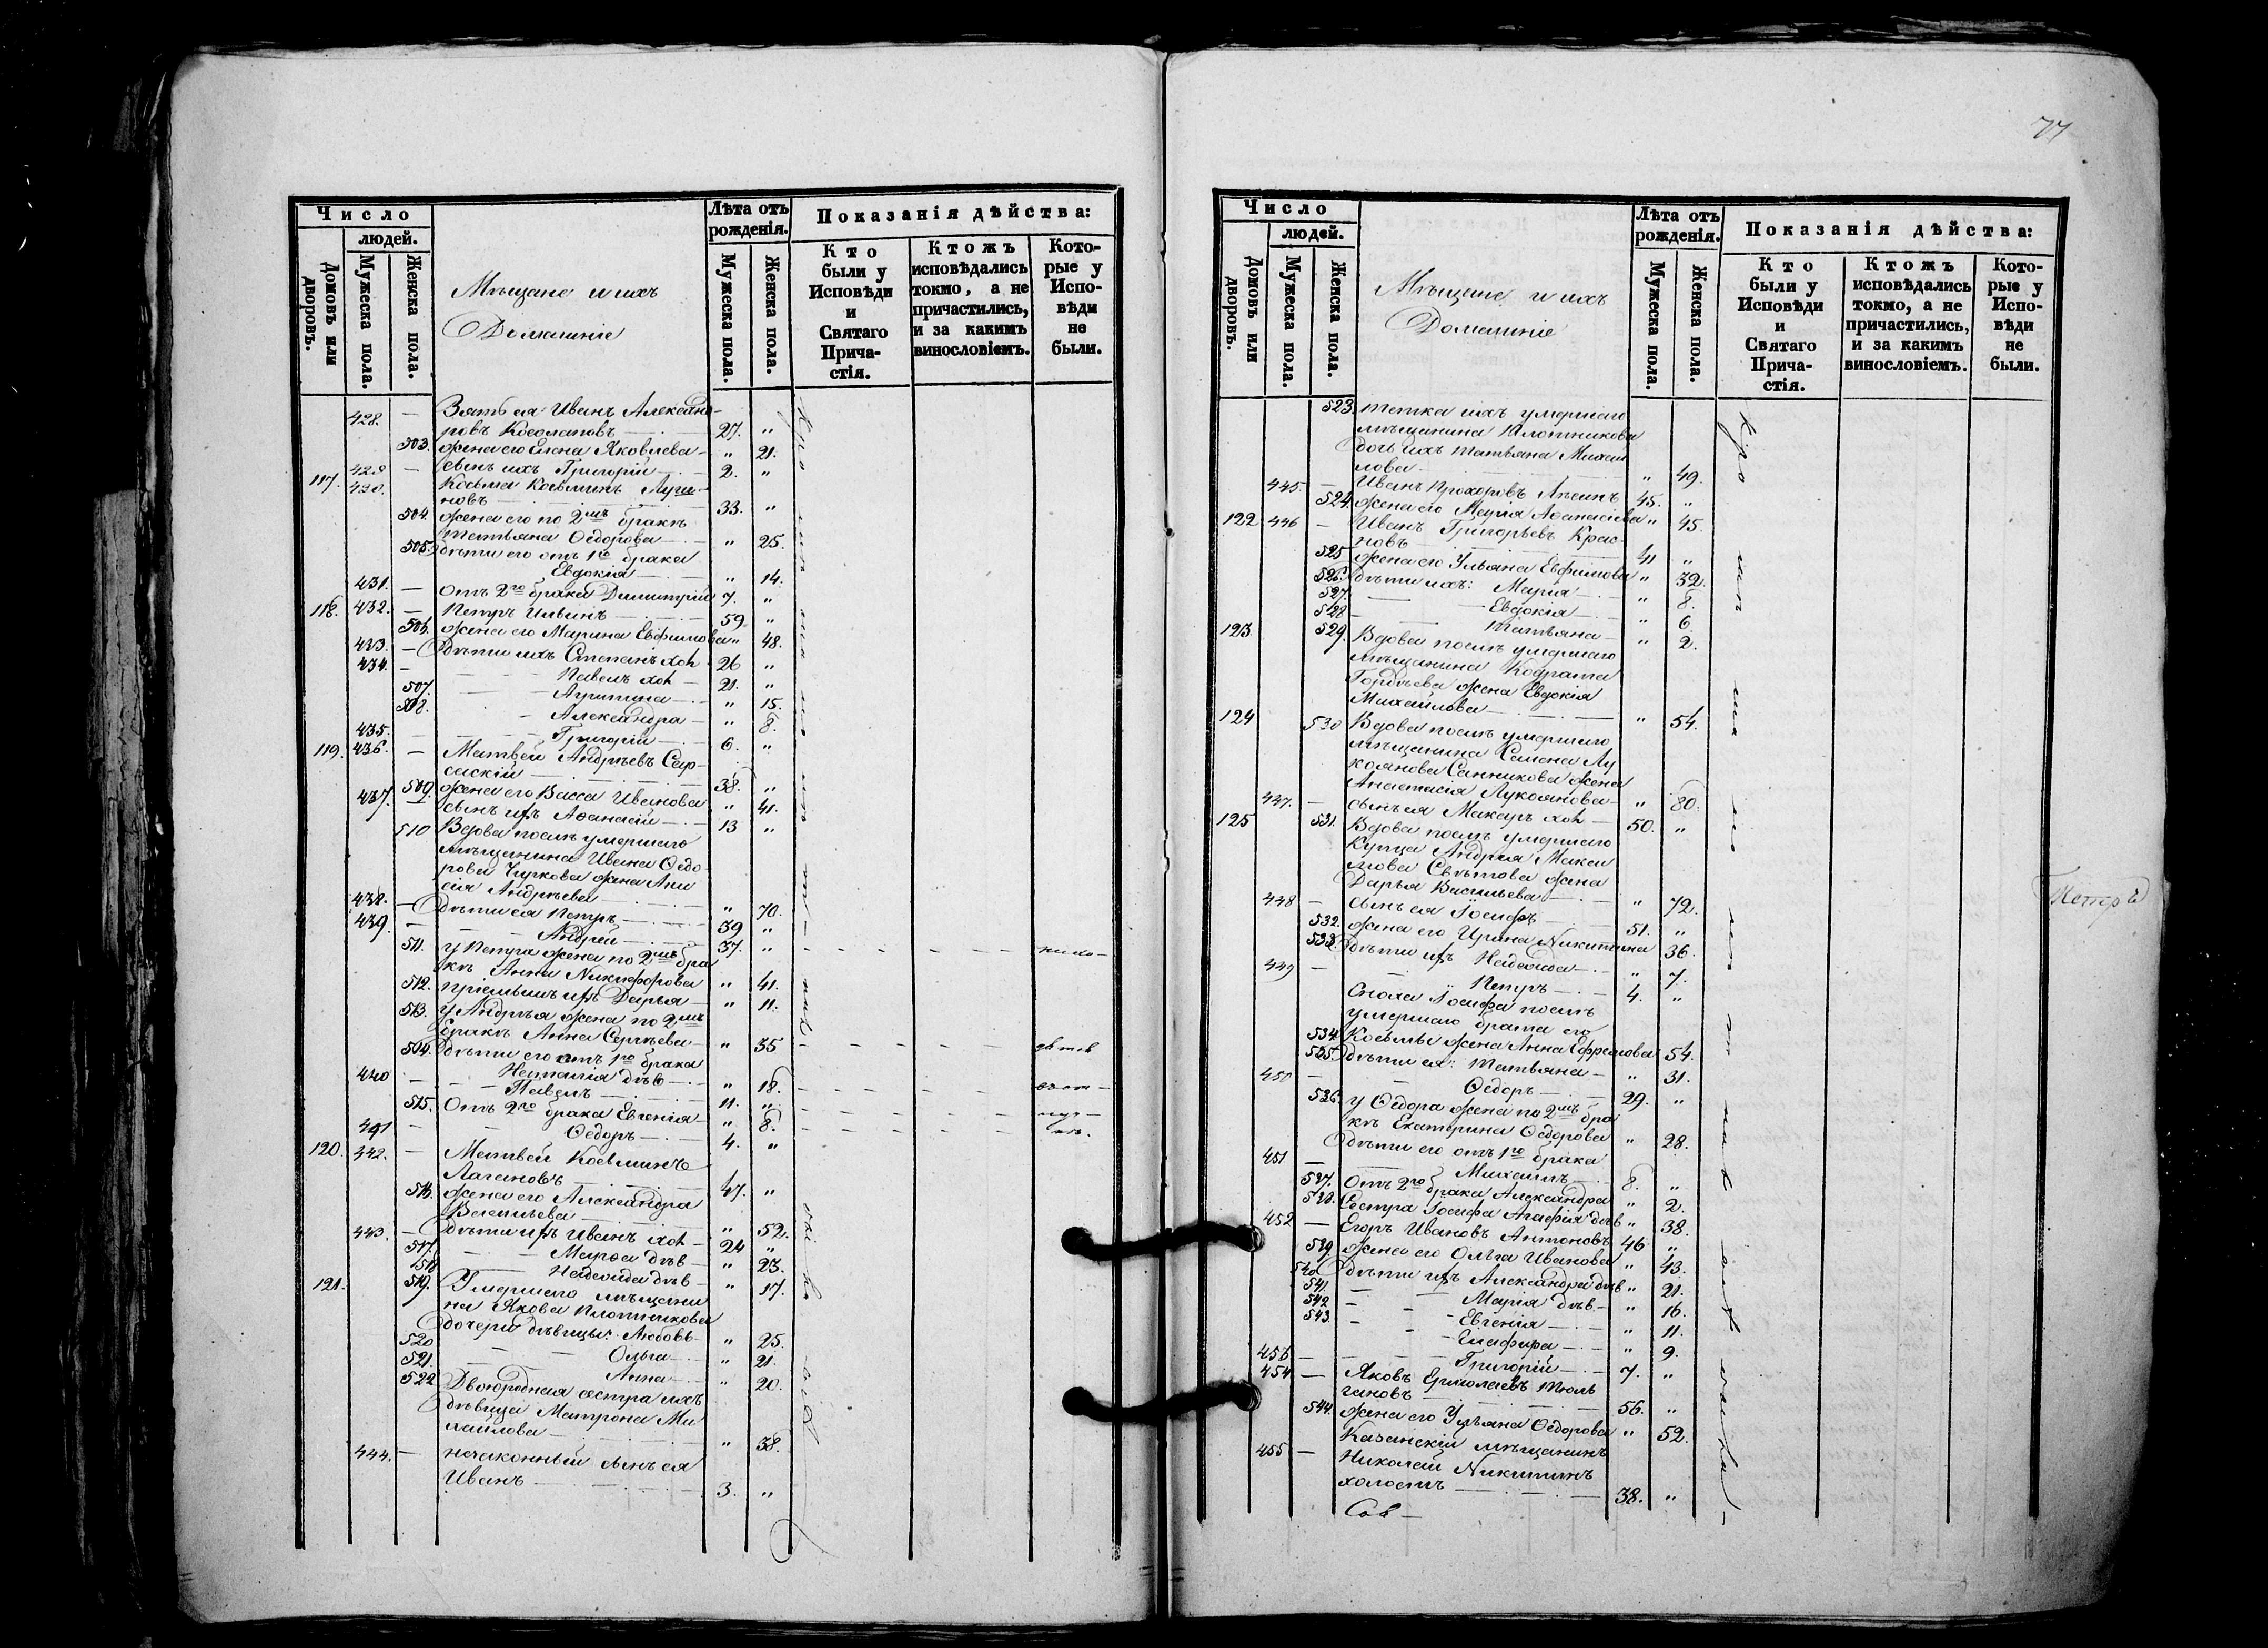 Число
людей.
Домовъ или дворовъ.
Мужеска пола.
Женска пола.
Мѣщане и ихъ
Домашніе
Лѣта отъ
рожденія.
Мужеска пола.
Женска пола.
Показанія дѣйства:
Кто
были у
Исповѣди
и
Святаго
Прича-
стія.
Ктожъ
исповѣдались
токмо, а не
причастились,
и за какимъ
винословіемъ.
Кото-
рые у
Испо-
вѣди
не
были.
428. — Зять ея Иванъ Александ-
ровъ Косолаповъ — 27. "
503. жена его Елена Яковлева — " 21.
429 — сынъ ихъ Григорій — 2. "
117. 430. Косьма Косьминъ
новъ — 33. "
504. жена его по 2мъ бракѣ
Татьяна Ѳедорова — " 25.
505. дѣти его отъ 1го брака
Евдокія — " 14.
431. — Отъ 2го брака Димитрій 7. "
118. 432. — Петръ Ильинъ — 59 "
506. жена его Марина Евфимова " 48.
433. — Дѣти ихъ Степанъ хол. 26 "
434. — Павелъ хол — 21. "
507. — Агрипина — " 15.
508. — Александра — " 8.
435. — Григорій — 6. "
119. 436. — Матвей Андреевъ Сар-
скій — 38. "
509. жена его Васса Иванова " 41.
437. сынъ ихъ Аѳанасій — 13 "
510 Вдова послѣ умершаго
мѣщанина Ивана Ѳедо-
рова Чуркова жена Ани
сія Андреева — " 70.
438. — Дѣти ея Петръ — 39 "
439. — Андрей — 37. "
511. у Петра жена по 2мъ бра
кѣ Анна Никифорова " 41.
512. пріемышъ ихъ Дарья — " 11.
513. у Андрея жена по 2мъ
бракѣ Анна Сергѣева — " 35
514. Дѣти его отъ 1го брака
Наталія дѣв — " 18.
440 — Павелъ — 11. "
515. Отъ 2го брака Евгенія — " 8.
441 — Ѳедоръ — 4. "
120. 342. — Матвей Косьминъ
Лагановъ — 47. "
516. жена его Александра
Васильева — " 52.
443. — Дѣти ихъ Иванъ хол — 24 "
517. — Марѳа дѣв — " 23.
518 Надежда дѣв — " 17.
121. 519. Умершаго мѣщани
на Якова Плотникова
дочери дѣвицы: Любовь — " 25.
520 — Ольга — " 21.
521. Анна — " 20.
522 Двоюродная сестра ихъ
дѣвица Матрона Ми
хайлова — " 38.
444. — незаконный сынъ ея
Иванъ — 3. "
77
Число
людей.
Домовъ или дворовъ.
Мужеска пола.
Женска пола.
Мѣщане и ихъ
Домашніе
Лѣта отъ
рожденія.
Мужеска пола.
Женска пола.
Показанія дѣйства:
Кто
были у
Исповѣди
и
Святаго
Прича-
стія.
Ктожъ
исповѣдались
токмо, а не
причастились,
и за какимъ
винословіемъ.
Кото-
рые у
Испо-
вѣди
не
были.
523. тетка ихъ умершаго
мѣщанина Плотникова
дочь ихъ Татьяна Михай
лова — " 49.
445. — Иванъ Прохоровъ 45. "
524. жена его Марія Аѳанасіева " 45.
122 446 — Иванъ Григорьевъ Крас-
новъ — 41 "
525 жена его Ульяна Евфимова " 32.
526. дѣти ихъ: Марія — " 8.
527. — Евдокія — " 6
528 — Татьяна — " 2.
123 529. Вдова послѣ умершаго
мѣщанина Кодрата
Гордѣева жена Евдокія
Михайлова — " 54.
124 530 Вдова послѣ умершаго
мѣщанина Семена Лу
коянова Санникова жена
Анастасія Лукоянова — " 80.
447. — сынъ ея Макаръ хол — 50. "
125 531. Вдова послѣ умершаго
Купца Андрея Макси
мова Свѣтова жена
Дарья Васильева — " 72.
448 — сынъ ея Іосифъ — 51. "
532. жена его Ирина Никитина 36.
533. Дѣти ихъ Надежда — " 7.
449 — Петръ — 4. "
Сноха Іосифа послѣ
умершаго брата его
534. Косьмы жена Анна Ефремова 54.
535. дѣти ея: Татьяна — " 31.
450 — Ѳедоръ — 29. "
536. у Ѳедора жена по 2мъ бра
кѣ Екатерина Ѳедорова " 28.
Дѣти его отъ 1го брака
451 — Михаилъ — 8. "
537. Отъ 2го брака Александра " 2.
538. Сестра Іосифа Агафія дѣв " 38.
452 — Егоръ Ивановъ Антоновъ 46 "
539. жена его Ольга Иванова " 43.
540 дѣти ихъ Александра дѣв " 21.
541. — Марія дѣв — " 16.
542 — Евгенія — " 11.
543. — Глафира — " 9.
453 — Григорій — 7. "
454 — Яковъ Ермолаевъ Тюль
гановъ — 56. "
544. жена его Ульяна Ѳедорова " 52.
455 — Казанскій мѣщанинъ
Николай Никитинъ
холостъ — 38. "
Сов —